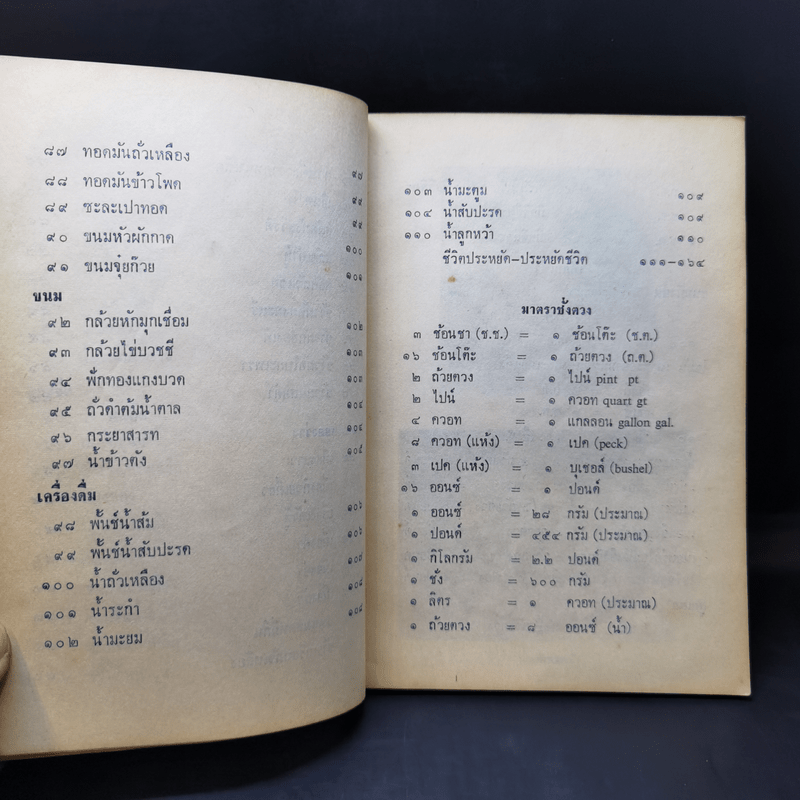 ๘๗ ทอดมันถั่วเหลือง ๙๘
๘๘ ทอดมันข้าวโพด ๙๙
๘๙ ซะละเปาทอด ๙๙
๙๐ ขนมหัวผักกาด ๑๐๐
๙๑ ขนมจุ๋ยก๊วย ๑๐๑
ขนม
๙๒ กล้วยหักมุกเชื่อม ๑๐๒
๙๓ กล้วยไข่บวชชี ๑๐๓
๙๔ ฟักทองแกงบวด ๑๐๓
๙๕ ถั่วดำต้มน้ำตาล ๑๐๔
๙๖ กระยาสารท ๑๐๔
๙๗ น้ำข้าวตัง ๑๐๕
เครื่องดื่ม
๙๘ พั้นช์น้ำส้ม ๑๐๖
๙๙ พั้นช์น้ำสับปะรด ๑๐๖
๑๐๐ น้ำถั่วเหลือง ๑๐๘
๑๐๑ น้ำระกำ ๑๐๘
๑๐๒ น้ำมะยม
๑๐๓ น้ำมะตูม ๑๐๙
๑๐๔ น้ำสับปะรด ๑๐๙
๑๑๐ น้ำลูกหว้า ๑๑๐
ชีวิตประหยัด-ประหยัดชีวิต ๑๑๑-๑๖๔
มาตราชั่งตวง
๓ ช้อนชา (ช.ช.) = ๑ ช้อนโต๊ะ (ช.ต.)
๑๖ ช้อนโต๊ะ = ๑ ถ้วยตวง (ถ.ต.)
๒ ถ้วยตวง = ๑ ไปน์ pint pt
๒ ไปน์ = ๑ ควอท quart gt
๔ ควอท = ๑ แกลลอน gallon gal.
๘ ควอท (แห้ง) = ๑ เปค (peck)
๓ เปค (แห้ง) = ๑ บุเชอล์ (bushel)
๑๖ ออนซ์ = ๑ ปอนด์
๑ ออนซ์ = ๒๘ กรัม (ประมาณ)
๑ ปอนด์ = ๔๕๔ กรัม (ประมาณ)
๑ กิโลกรัม = ๒.๒ ปอนด์
๑ ชั่ง = ๖๐๐ กรัม
๑ ลิตร = ๑ ควอท (ประมาณ)
๑ ถ้วยตวง = ๘ ออนซ์ (น้ำ)